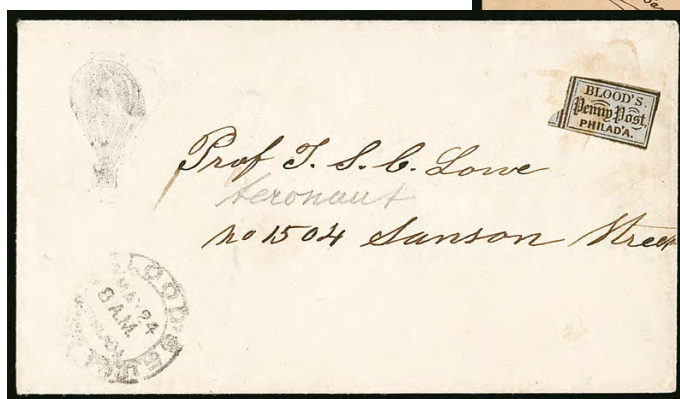 BLOOD'S
Penny Post
PHILAD'A.
Prof T. S. C. Lowe
Aeronaut
No 1504 Sanson Street
BLOOD'S
MAY 24
8 A.M.